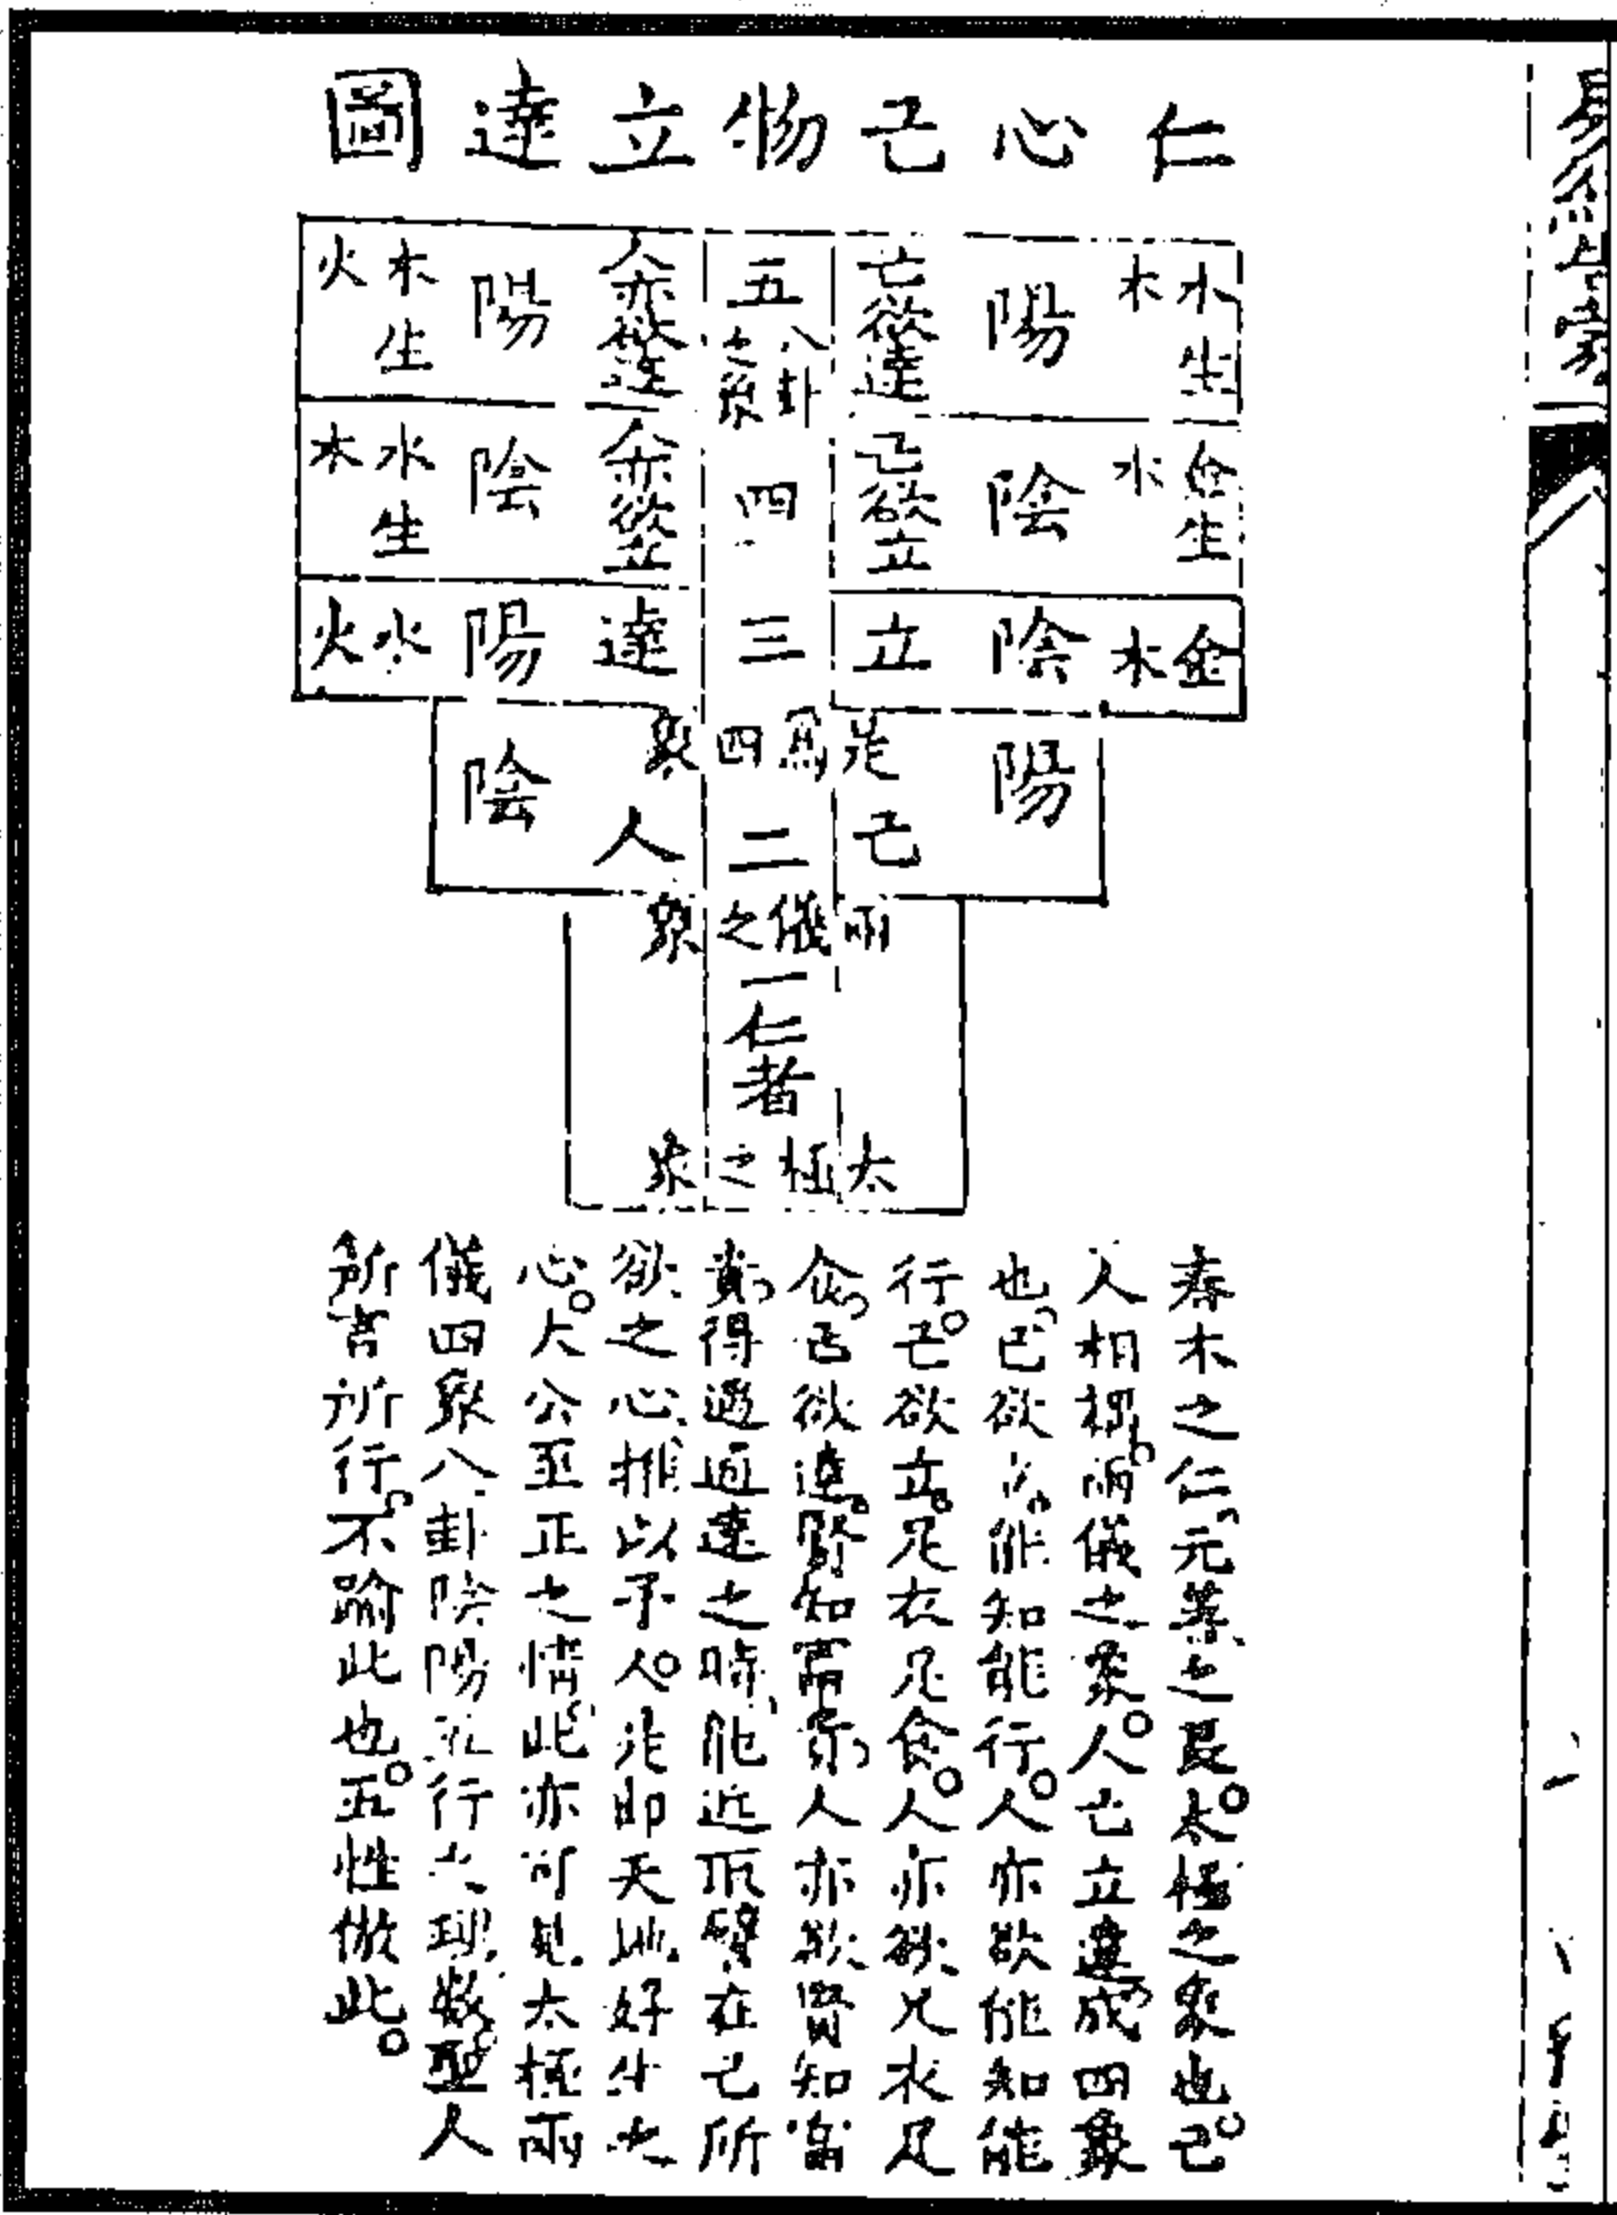 仁心己物立達圖
水生木 陽 己欲達 五 八卦之象 人亦欲達 陽 木生火
金生水 陰 己欲立 四 人亦欲立 陰 水生木
金木 陰 立 三 達 陽 水火
是爲四象
陽 己 二 人 陰
兩儀之象
一仁者
太極之象
春木之仁、元善之長。太極之象也。己
人相耦。兩儀之象。人己立達、成四象
也、己欲立。能知能行。人亦欲能知能
行。己欲立。足衣足食。人亦欲足衣足
食、己欲達。賢知富貴、人亦欲賢知富
貴、得過通達之時、能近取譬、在己所
欲之心、推以予人。是即天地好生之
心。大公至正之情、此亦可見太極兩
儀四象八卦陰陽五行之理數、聖人
所言所行。不踰此也。五性倣此。